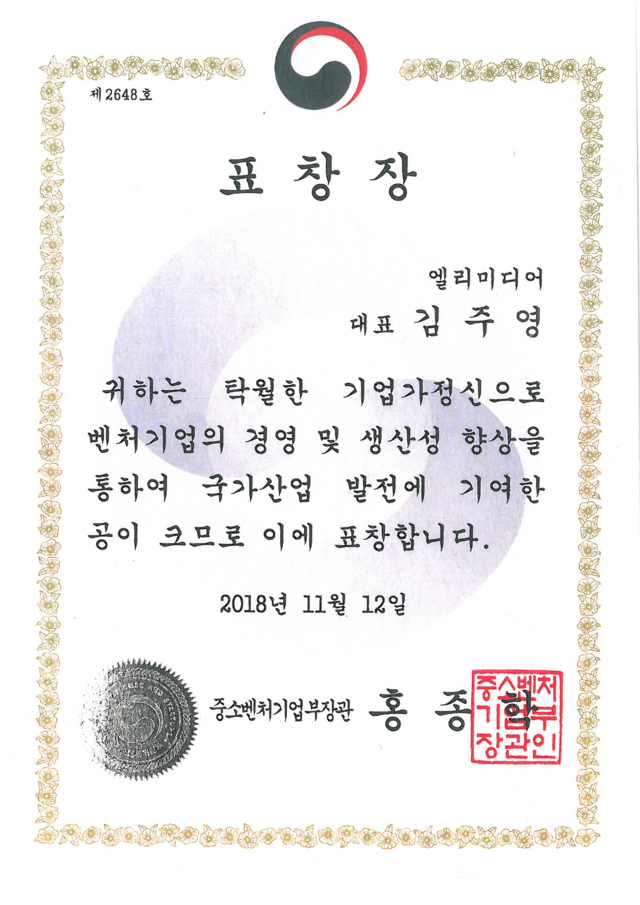 제 2648 호
표 창 장
엘리미디어
대표 김 주 영
귀하는 탁월한 기업가정신으로
벤처기업의 경영 및 생산성 향상을
통하여 국가산업 발전에 기여한
공이 크므로 이에 표창합니다.
2018년 11월 12일
중소벤처기업부장관 홍 종 학
중소벤처
기업부
장관인